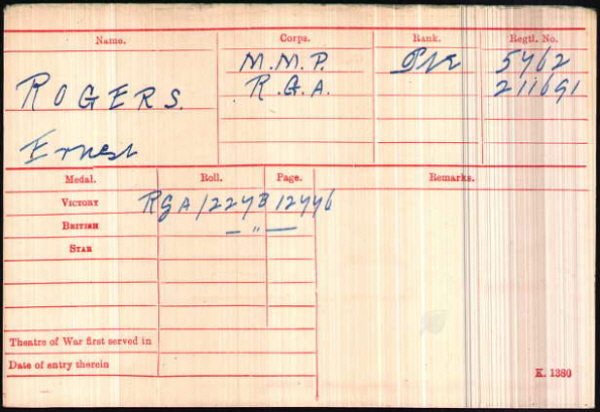 Name. Corps. Rank. Regtl. No.
ROGERS. M.M.P. Pte 5762
R.G.A. 211691
Ernest
Medal. Roll. Page. Remarks.
VICTORY RGA/227B 12776
BRITISH — " —
STAR
Theatre of War first served in
Date of entry therein
K. 1380